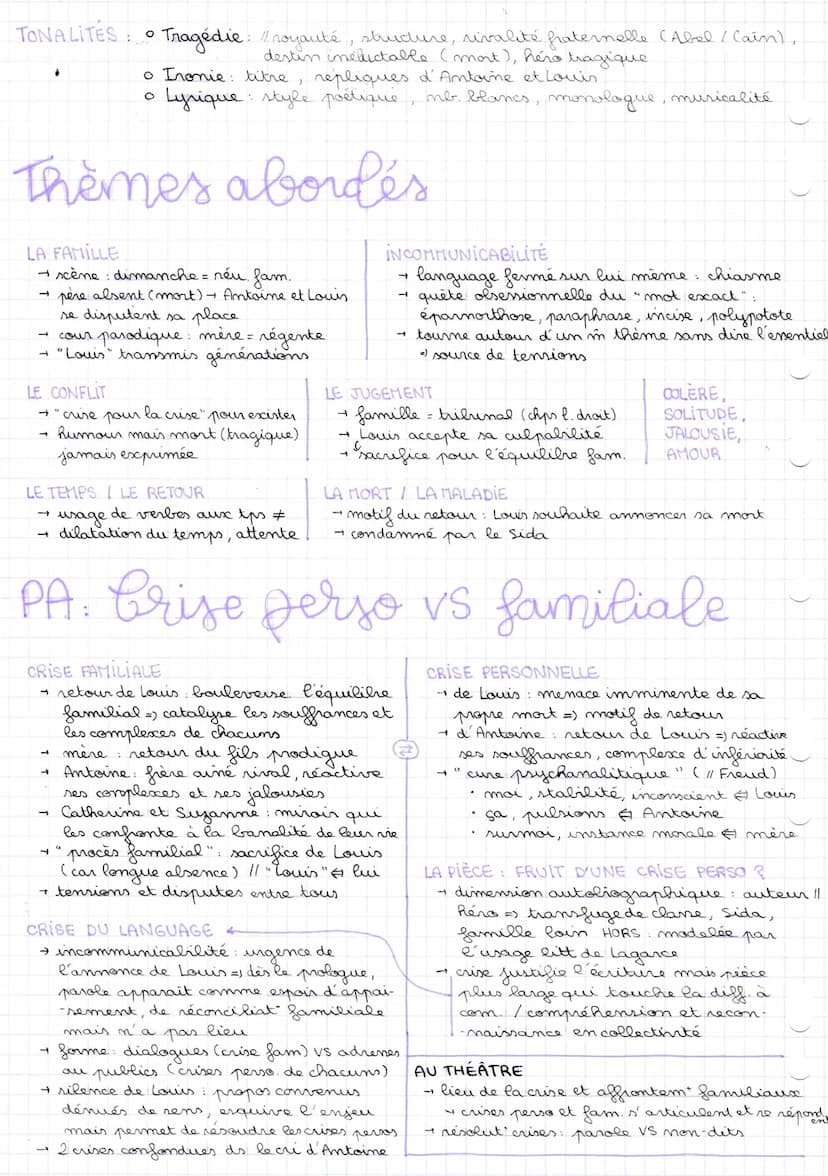 TONALITÉS : o Tragédie : // royauté, structure, rivalité fraternelle (Abel / Caïn),
destin inéluctable (mort), héro tragique
o Ironie : titre, répliques d'Antoine et Louis
o Lyrique : style poétique, nb. blancs, monologue, musicalité
Thèmes abordés
LA FAMILLE
→ scène : dimanche = réu. fam.
→ père absent (mort) → Antoine et Louis
se disputent sa place
→ cour parodique : mère = régente
→ "Louis" transmis générations
INCOMMUNICABILITÉ
→ language fermé sur lui même : chiasme
→ quête obsessionnelle du "mot exact" :
épannorthose, paraphrase, incise, polyptote
→ tourne autour d'un m̂ thème sans dire l'essentiel
⇒ source de tensions
LE CONFLIT
→ "crise pour la crise" pour exister
→ humour mais mort (tragique)
jamais exprimée
LE JUGEMENT
→ famille = tribunal (chps l. droit)
→ Louis accepte sa culpabilité
→ sacrifice pour l'équilibre fam.
COLÈRE,
SOLITUDE,
JALOUSIE,
AMOUR
LE TEMPS / LE RETOUR
→ usage de verbes aux tps ≠
→ dilatation du temps, attente
LA MORT / LA MALADIE
→ motif du retour : Louis souhaite annoncer sa mort
→ condamné par le Sida
PA : Crise perso VS familiale
CRISE FAMILIALE
→ retour de Louis : bouleverse l'équilibre
familial ⇒ catalyse les souffrances et
les complexes de chacuns
→ mère : retour du fils prodigue
→ Antoine : frère aîné rival, réactive
ses complexes et ses jalousies
→ Catherine et Suzanne : miroir qui
les confronte à la banalité de leur vie
→ "procès familial" : sacrifice de Louis
(car longue absence) // "Louis" ⇔ lui
→ tensions et disputes entre tous
CRISE DU LANGUAGE
→ incommunicabilité : urgence de
l'annonce de Louis ⇒ dès le prologue,
parole apparait comme espoir d'appai-
-sement, de réconciliat° familiale
mais n'a pas lieu
→ forme : dialogues (crise fam) VS adresses
au publics (crises perso. de chacuns)
→ silence de Louis : propos convenus
dénués de sens, esquive l'enjeu
mais permet de résoudre les crises persos
→ 2 crises confondues ds le cri d'Antoine
⇄
CRISE PERSONNELLE
→ de Louis : menace imminente de sa
propre mort ⇒ motif de retour
→ d'Antoine : retour de Louis ⇒ réactive
ses souffrances, complexe d'infériorité
→ "cure psychanalitique" (// Freud)
• moi, stabilité, inconscient ⇔ Louis
• ça, pulsions ⇔ Antoine
• surmoi, instance morale ⇔ mère
LA PIÈCE : FRUIT D'UNE CRISE PERSO ?
→ dimension autobiographique : auteur //
héro ⇒ transfuge de classe, Sida,
famille loin HORS : modelée par
l'usage litt de Lagarce
→ crise justifie l'écriture mais pièce
plus large qui touche la diff. à
com. / compréhension et recon-
-naissance en collectivité
AU THÉÂTRE
→ lieu de la crise et affrontem^t familiaux
↪ crises perso et fam. s'articulent et se répondent
→ résolut° crises : parole VS non-dits